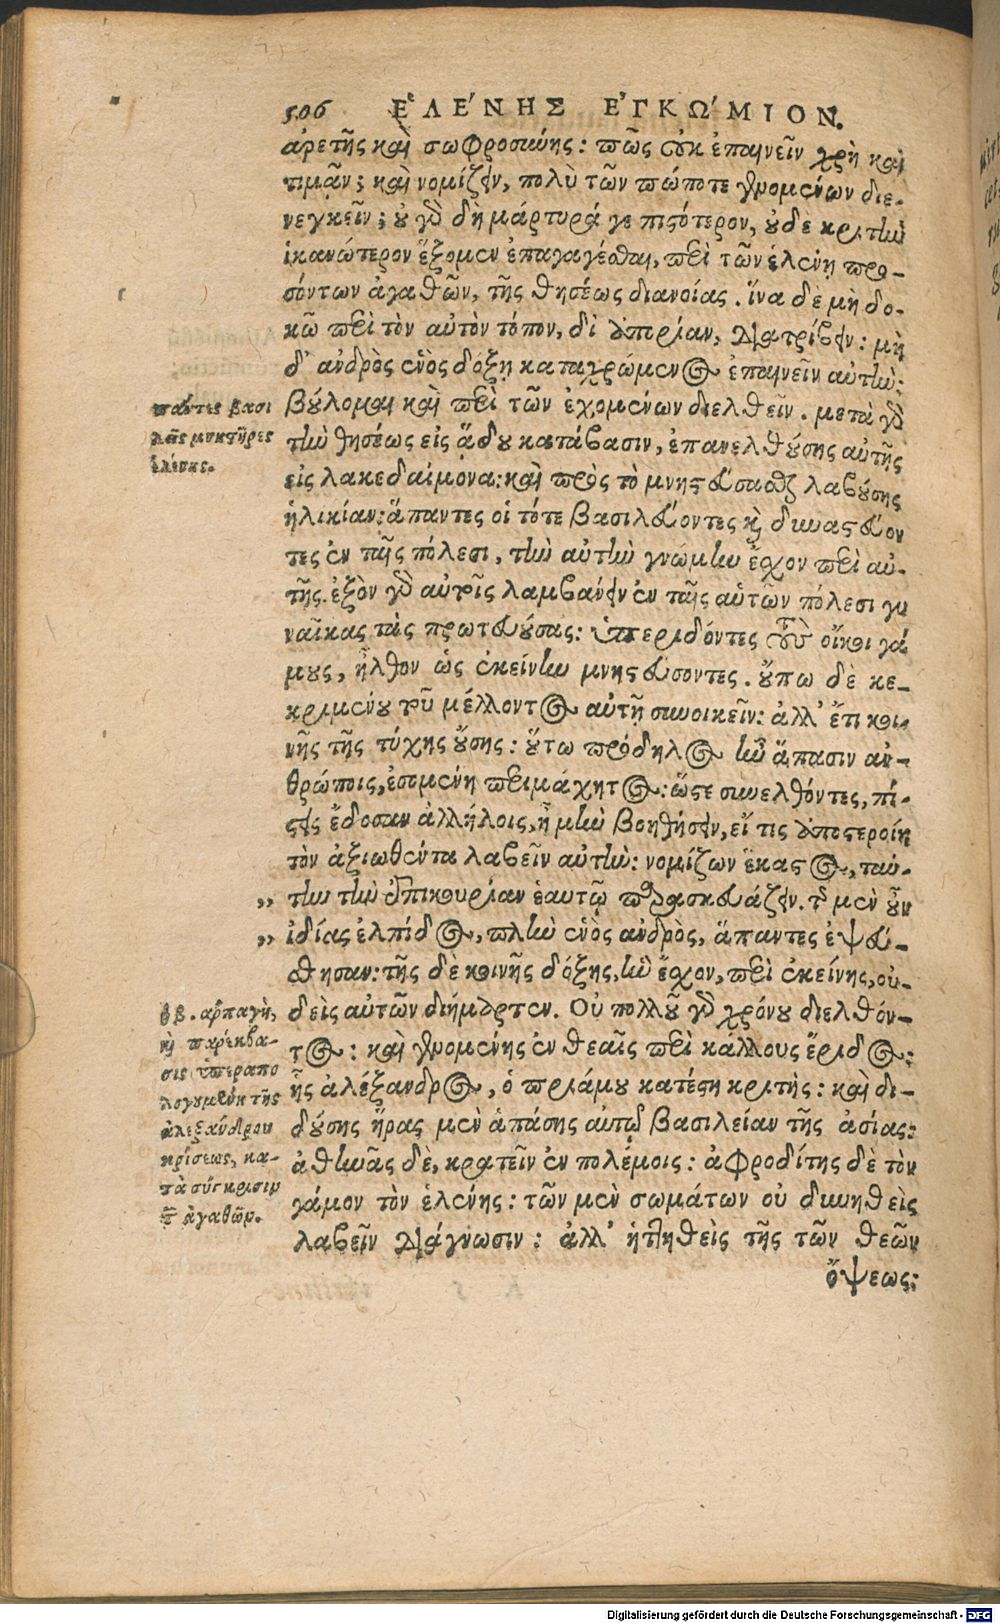 506 ἙΛΈΝΗΣ ἘΓΚΏΜΙΟΝ.
ἀρετῆς καὶ σωφροσύνης: πῶς οὐκ ἐπαινεῖν χρὴ καὶ
τιμᾷν; καὶ νομίζειν, πολὺ τῶν πώποτε γενομένων διε-
νεγκεῖν; οὐ γὰρ δὴ μάρτυρά γε πιστότερον, οὐδὲ κριτὴν
ἱκανώτερον ἕξομεν ἐπαγαγέσθαι, περὶ τῶν ἑλένῃ προ-
σόντων ἀγαθῶν, τῆς θησέως διανοίας. ἵνα δὲ μὴ δο-
κῶ περὶ τὸν αὐτὸν τόπον, δι' ἀπορίαν, διατρίβειν: μη
δ' ἀνδρὸς ἑνὸς δόξῃ καταχρώμενος ἐπαινεῖν αὐτὴν:
βούλομαι καὶ περὶ τῶν ἐχομένων διελθεῖν. μετὰ γὰρ
τὴν θησέως εἰς ᾅδου κατάβασιν, ἐπανελθούσης αὐτῆς
εἰς λακεδαίμονα: καὶ πρὸς τὸ μνηστεύσασθαι λαβούσης
ἡλικίαν: ἅπαντες οἱ τότε βασιλεύοντες καὶ δυναστεύον
τες ἐν ταῖς πόλεσι, τὴν αὐτὴν γνώμην ἔχον περὶ αὐ-
τῆς. ἐξὸν γὰρ αὐτοῖς λαμβάνειν ἐν ταῖς αὑτῶν πόλεσι γυ
ναῖκας τὰς πρωτευούσας: ὑπεριδόντες τοὺς οἴκοι γά
μους, ἦλθον ὡς ἐκείνην μνηστεύσοντες. οὔπω δὲ κε-
κριμένου τοῦ μέλλοντος αὐτῇ συνοικεῖν: ἀλλ' ἔτι κοι-
νῆς τῆς τύχης οὔσης: οὕτω πρόδηλος ἦν ἅπασιν ἀν-
θρώποις, ἐσομένη περιμάχητος: ὥστε συνελθόντες, πί-
στεις ἔδοσαν ἀλλήλοις, ἦ μὴν βοηθήσειν, εἴ τις ἀποστεροίη
τὸν ἀξιωθέντα λαβεῖν αὐτὴν: νομίζων ἕκαστος, ταύ-
„ την τὴν ἐπικουρίαν ἑαυτῷ παρασκευάζειν. τῆς μὲν οὖν
„ ἰδίας ἐλπίδος, πλὴν ἑνὸς ἀνδρὸς, ἅπαντες ἐψεύ-
σθησαν: τῆς δὲ κοινῆς δόξης, ἣν ἔχον, περὶ ἐκείνης, οὐ-
δεὶς αὐτῶν διήμαρτεν. Οὐ πολλοῦ γὰρ χρόνου διελθόν-
τος: καὶ γενομένης ἐν θεαῖς περὶ κάλλους ἔριδος:
ἧς ἀλέξανδρος, ὁ πριάμου κατέστη κριτὴς: καὶ δι-
δούσης ἥρας μὲν ἁπάσης αὐτῷ βασιλείαν τῆς ἀσίας:
ἀθηνᾶς δὲ, κρατεῖν ἐν πολέμοις: ἀφροδίτης δὲ τὸν
γάμον τὸν ἑλένης: τῶν μὲν σωμάτων οὐ δυνηθεὶς
λαβεῖν διάγνωσιν: ἀλλ' ἡττηθεὶς τῆς τῶν θεῶν
ὄψεως:
πάντες βασι
λεῖς μνηστῆρες
ἑλένης.
ββ. ἁρπαγὴ,
καὶ παρέκβα-
σις ὑπεραπο
λογουμένη τῆς
ἀλεξάνδρου
κρίσεως, κα-
τὰ σύγκρισιν
τῶν ἀγαθῶν.